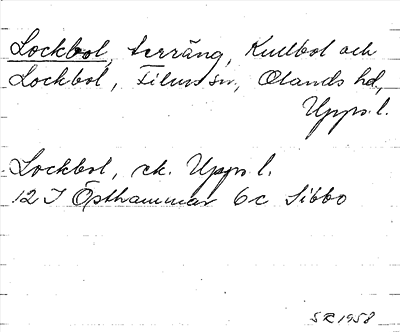 Lockbol, terräng, Kullbol och
Lockbol, Films sn, Olands hd,
Upps. l.
Lockbol, ek. Upps. l.
12 I Östhammar 6c Sibbo
SR 1958